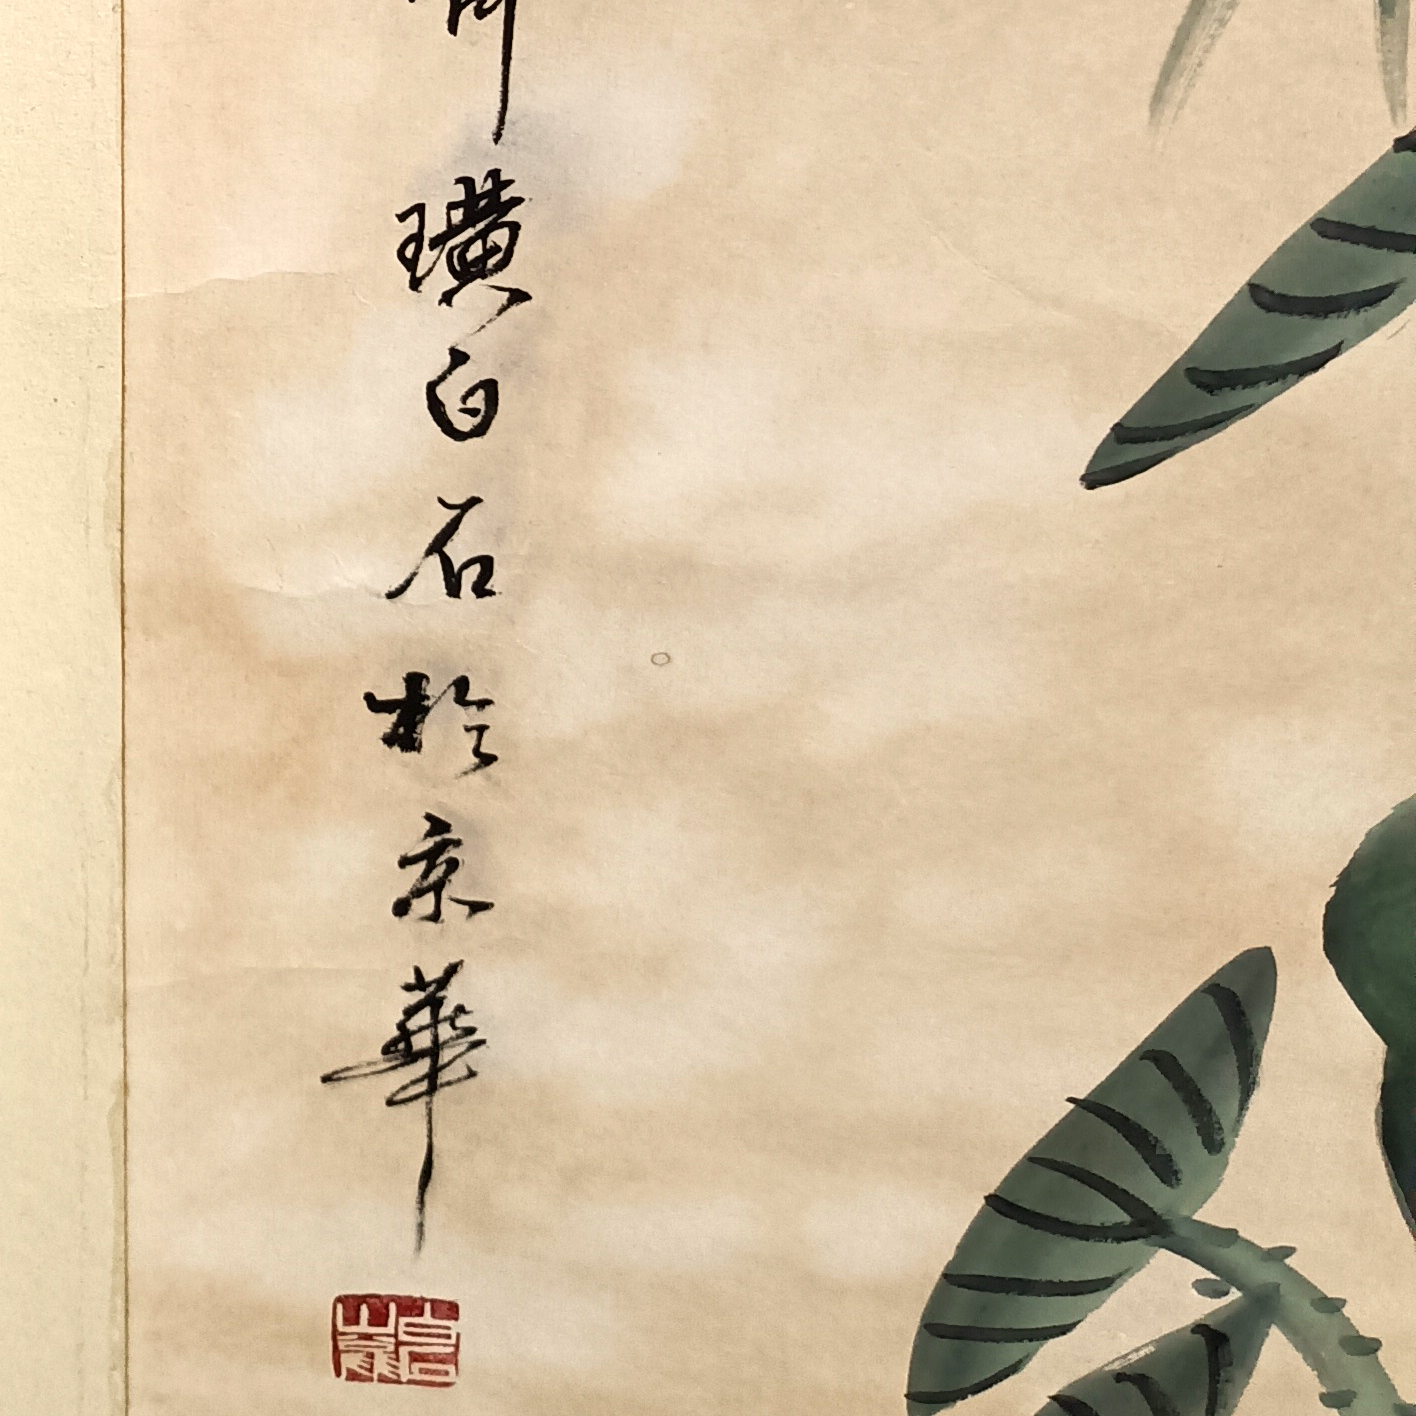 璜白石於京華